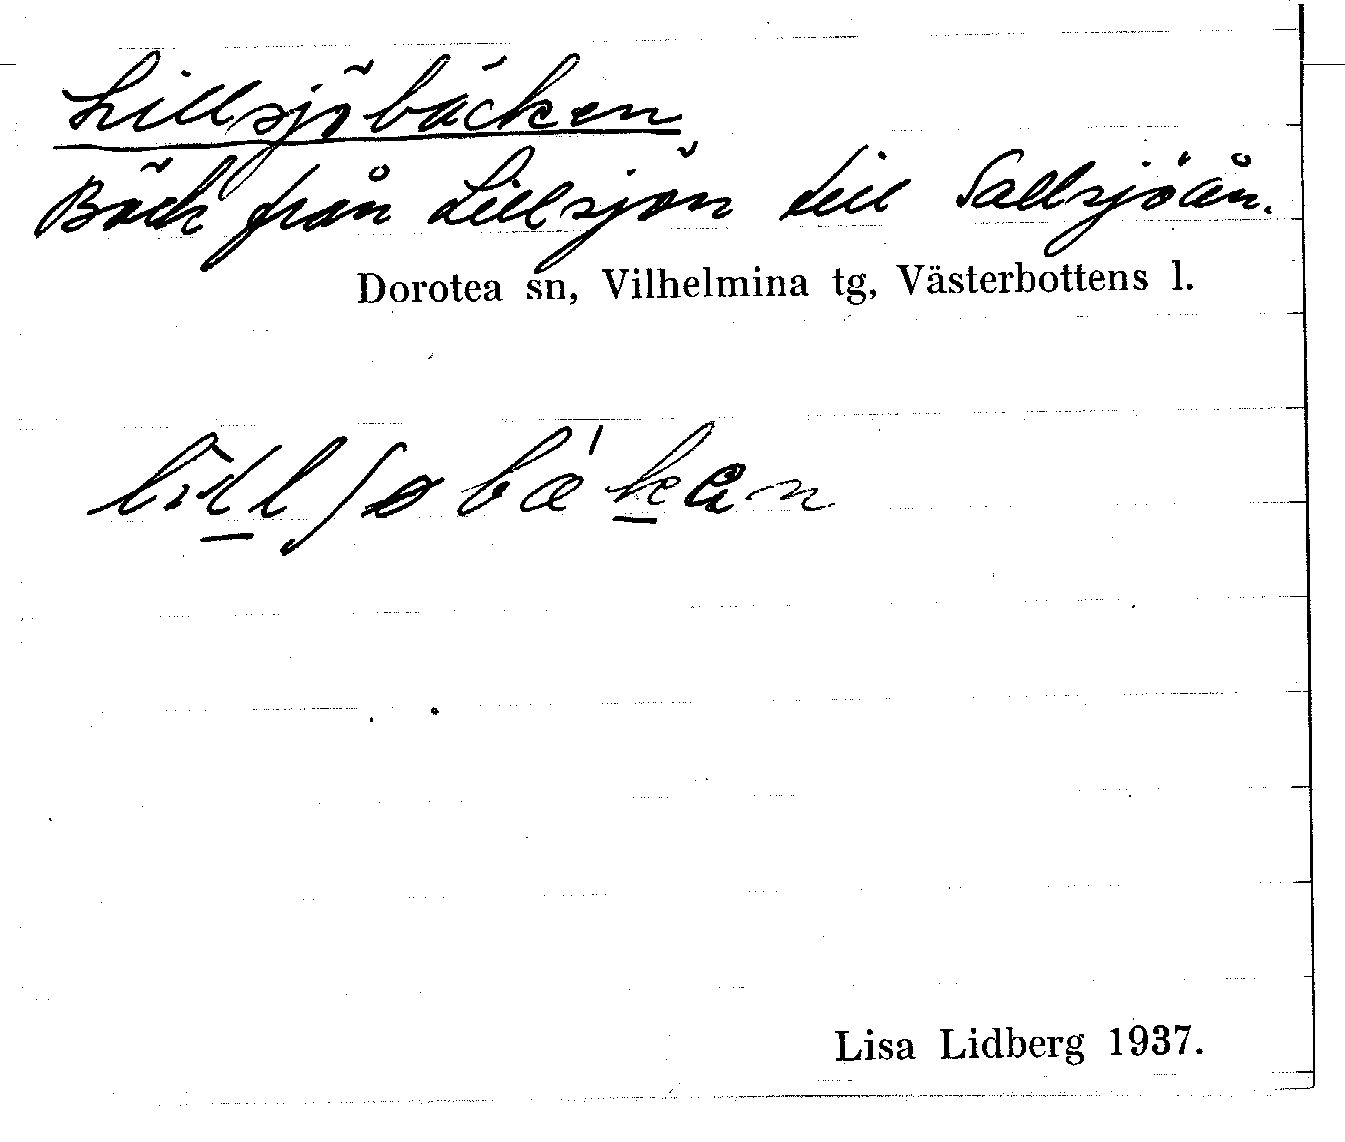 Lillsjöbäcken
Bäck från Lillsjön till Sallsjöån.
Dorotea sn, Vilhelmina tg, Västerbottens l.
Lisa Lidberg 1937.